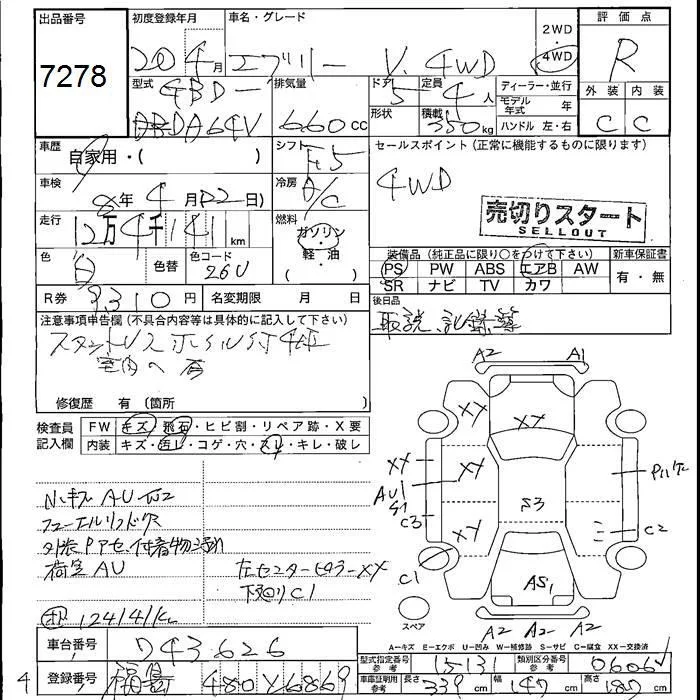 出品番号 初度登録年月 車名・グレード 2WD・4WD 評価点
7278 20 4月 エブリー V 4WD R
型式 GBD- 排気量 ドア 5 定員 4人 ディーラー・並行 外装 内装
ABDA64V 660cc 形状 積載 350kg モデル年式 年 C C
ハンドル 左・右
車歴 自家用・( ) シフト F5 セールスポイント (正常に機能するものに限ります)
車検 8年4月(22日) 冷房 A/C 4WD
売切りスタート
SELLOUT
走行 12万4千141km 燃料 ガソリン・軽・油
色 白 色替 色コード 26U
装備品 (純正品に限り○をつけて下さい) 新車保証書
PS PW ABS エアB AW 有・無
SR ナビ TV カワ
R券 9,310円 名変期限 月 日
後日品
取説、記録簿
注意事項申告欄 (不具合内容等は具体的に記入して下さい)
スタッドレスホイル付4本
室内へ有
修復歴 有 (箇所
検査員記入欄 FW キズ・飛石・ヒビ割・リペア跡・X要
内装 キズ・汚レ・コゲ・穴・スレ・キレ・破レ
A2 A1
XX XX
XX XX
AU1 S1 C3 XX S3 C2
C1 AS1
A2 A2 A2
スペア
荷室AU 左センターピラーXX
下廻りC1
124141km
A=キズ E=エクボ U=凹み W=補修跡 S=サビ C=腐食 XX=交換済
車台番号 743626 型式指定番号 参考 15131 類別区分番号 参考 0606
登録番号 福島 480 Y6869 車庫証明用 参考 長さ 339cm 幅 147cm 高さ 187cm
4